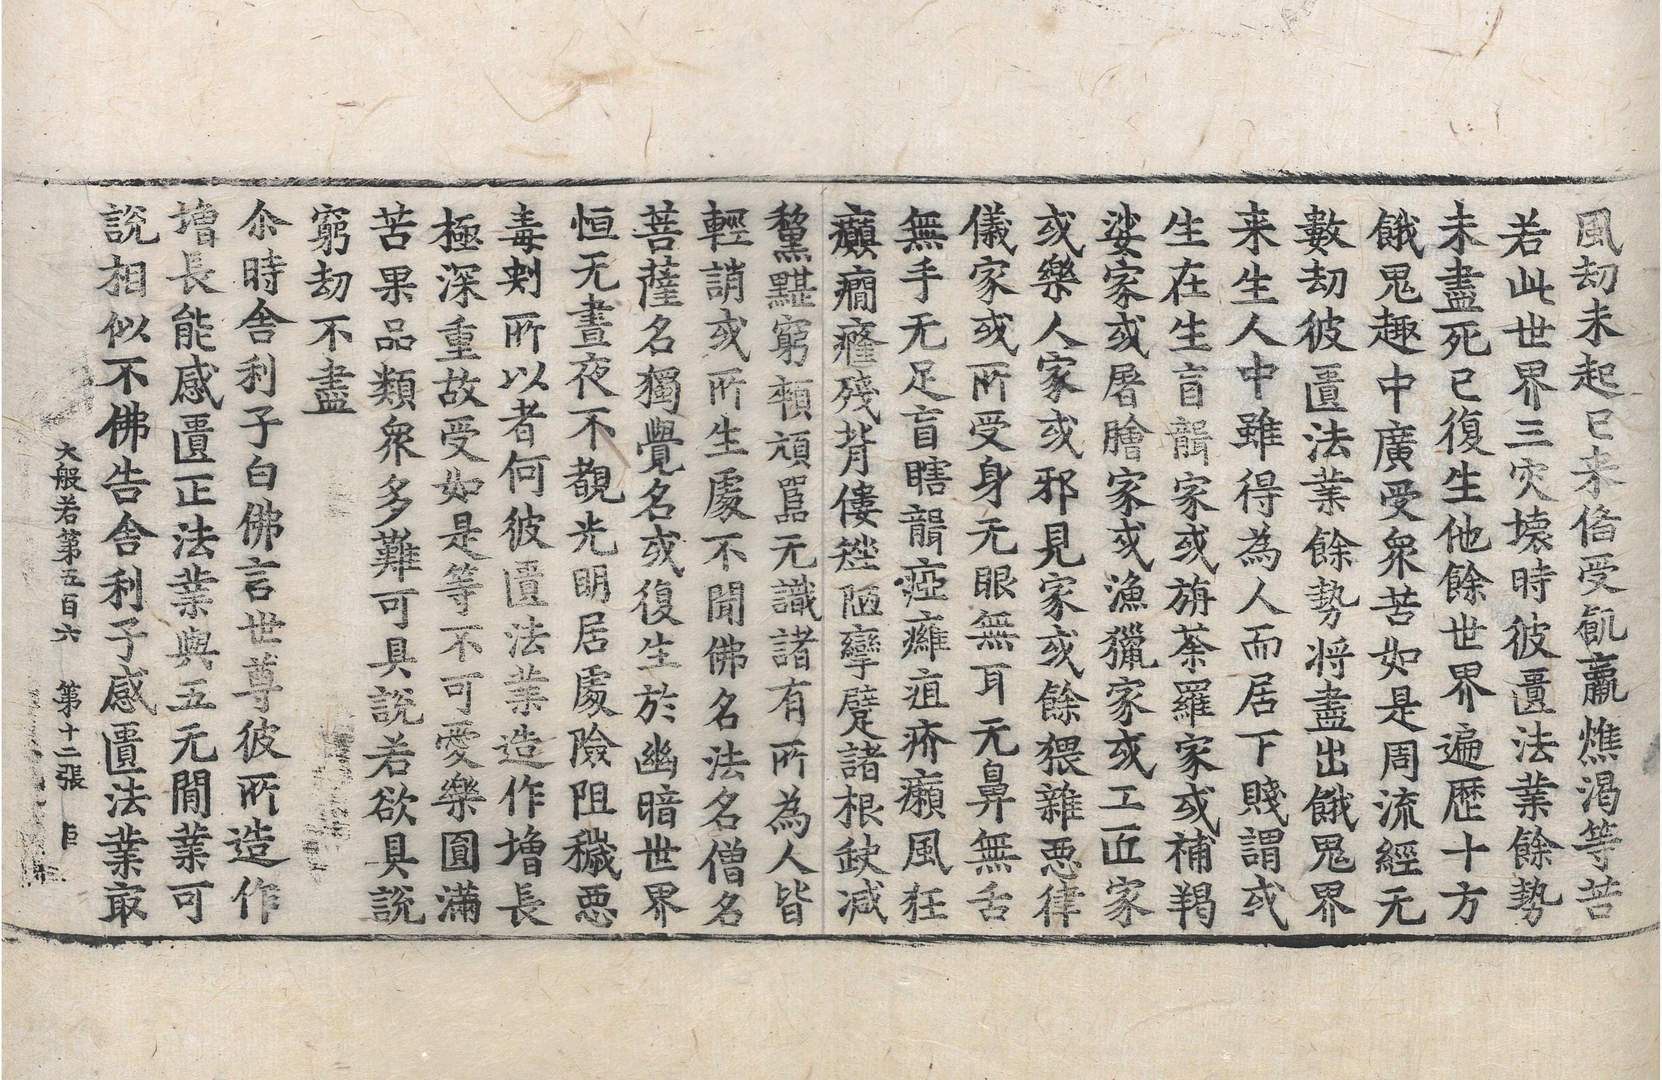 風劫未起已来俻受飢羸燋渴等苦
若此世界三灾壊時彼匱法業餘勢
未盡死已復生他餘世界遍歷十方
餓鬼趣中廣受衆苦如是周流經无
數劫彼匱法業餘勢将盡出餓鬼界
来生人中雖得為人而居下賤謂或
生在生盲聾家或旃荼羅家或補羯
娑家或屠膾家或漁獵家或工匠家
或樂人家或邪見家或餘猥雜惡律
儀家或所受身无眼無耳无鼻無舌
無手无足盲瞎聾瘂癰疽疥癩風狂
癲癇癃殘背僂矬陋攣躄諸根缺減
黧黮窮頓頑嚚无識諸有所為人皆
輕誚或所生處不聞佛名法名僧名
菩薩名獨覺名或復生於幽暗世界
恒无晝夜不覩光明居處險阻穢惡
毒刺所以者何彼匱法業造作增長
極深重故受如是等不可愛樂圓滿
苦果品類衆多難可具說若欲具說
窮劫不盡
尒時舎利子白佛言世尊彼所造作
增長能感匱正法業與五无閒業可
說相似不佛告舎利子感匱法業㝡
大般若第五百六　第十二張